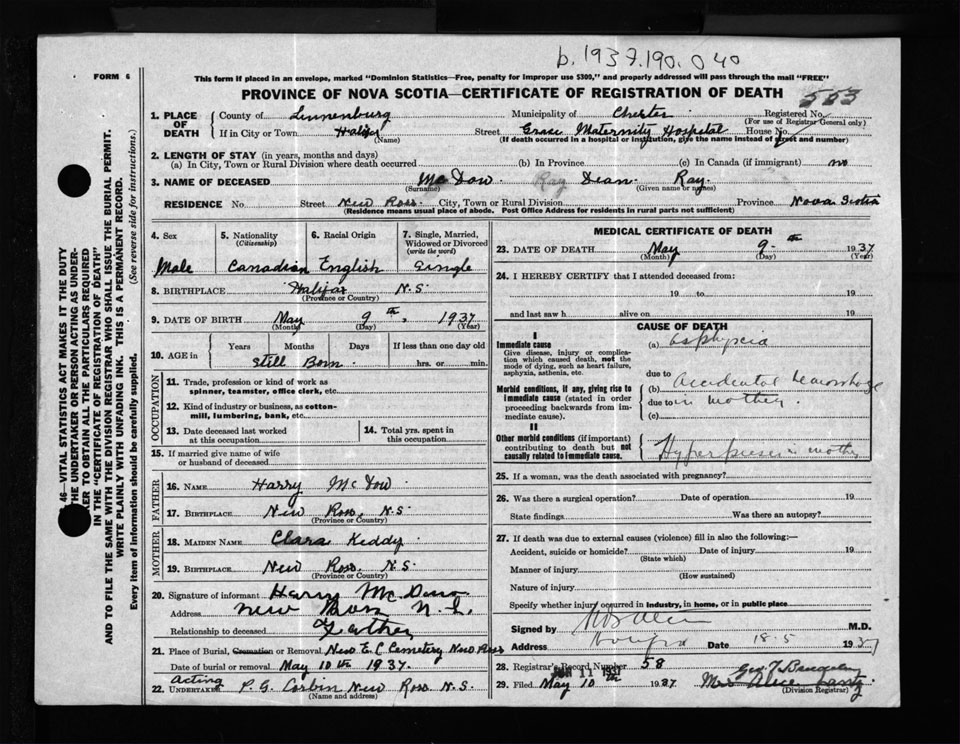 b. 1937.190.040
FORM 6
This form if placed in an envelope, marked "Dominion Statistics—Free, penalty for improper use $300," and properly addressed will pass through the mail "FREE"
PROVINCE OF NOVA SCOTIA—CERTIFICATE OF REGISTRATION OF DEATH
553
1. PLACE OF DEATH County of Lunnenburg Municipality of Chester Registered No.
(For use of Registrar General only)
If in City or Town Halifax Street Grace Maternity Hospital House No.
(Name) (If death occurred in a hospital or institution, give the name instead of street and number)
2. LENGTH OF STAY (in years, months and days)
(a) In City, Town or Rural Division where death occurred (b) In Province (c) In Canada (if immigrant) no
3. NAME OF DECEASED McDow Ray Dean Ray
(Surname) (Given name or names)
RESIDENCE No. Street New Ross City, Town or Rural Division Province Nova Scotia
(Residence means usual place of abode. Post Office Address for residents in rural parts not sufficient)
4. Sex 5. Nationality (Citizenship) 6. Racial Origin 7. Single, Married, Widowed or Divorced (write the word)
Male Canadian English Single
8. BIRTHPLACE Halifax N.S.
(Province or Country)
9. DATE OF BIRTH May 9th, 1937
(Month) (Day) (Year)
10. AGE in Years Months Days If less than one day old
still Born hrs. or min.
OCCUPATION
11. Trade, profession or kind of work as spinner, teamster, office clerk, etc.
12. Kind of industry or business, as cotton-mill, lumbering, bank, etc.
13. Date deceased last worked at this occupation 14. Total yrs. spent in this occupation
15. If married give name of wife or husband of deceased
FATHER
16. NAME Harry McDow
17. BIRTHPLACE New Ross, N.S.
(Province or Country)
MOTHER
18. MAIDEN NAME Clara Keddy
19. BIRTHPLACE New Ross. N.S.
(Province or Country)
20. Signature of informant Harry McDow
Address New Ross N.S.
Relationship to deceased Father
21. Place of Burial, Cremation or Removal New E.C Cemetery New Ross
Date of burial or removal May 10th 1937.
22. Acting UNDERTAKER P. G. Corbin New Ross N.S.
(Name and address)
MEDICAL CERTIFICATE OF DEATH
23. DATE OF DEATH May 9-th 1937
(Month) (Day) (Year)
24. I HEREBY CERTIFY that I attended deceased from:
19 to 19
and last saw h alive on 19
CAUSE OF DEATH
I
Immediate cause (a) Asphyxia
Give disease, injury or complication which caused death, not the mode of dying, such as heart failure, asphyxia, asthenia, etc.
due to
Morbid conditions, if any, giving rise to immediate cause (stated in order proceeding backwards from immediate cause).
(b) Accidental hemorrhage
due to in mother.
(c)
II
Other morbid conditions (if important) contributing to death but not causally related to immediate cause.
in mother
25. If a woman, was the death associated with pregnancy?
26. Was there a surgical operation? Date of operation 19
State findings Was there an autopsy?
27. If death was due to external causes (violence) fill in also the following:—
Accident, suicide or homicide? Date of injury 19
(State which)
Manner of injury
(How sustained)
Nature of injury
Specify whether injury occurred in industry, in home, or in public place
Signed by M.D.
Address Halifax Date 18-5 1937
28. Registrar's Record Number 58
JUN 11 1937
29. Filed May 10th 1937
(Division Registrar)
46—VITAL STATISTICS ACT MAKES IT THE DUTY
THE UNDERTAKER OR PERSON ACTING AS UNDER-
ER TO OBTAIN ALL THE PARTICULARS REQUIRED
IN THE "CERTIFICATE OF REGISTRATION OF DEATH"
AND TO FILE THE SAME WITH THE DIVISION REGISTRAR WHO SHALL ISSUE THE BURIAL PERMIT.
WRITE PLAINLY WITH UNFADING INK. THIS IS A PERMANENT RECORD.
Every item of information should be carefully supplied. (See reverse side for instructions.)